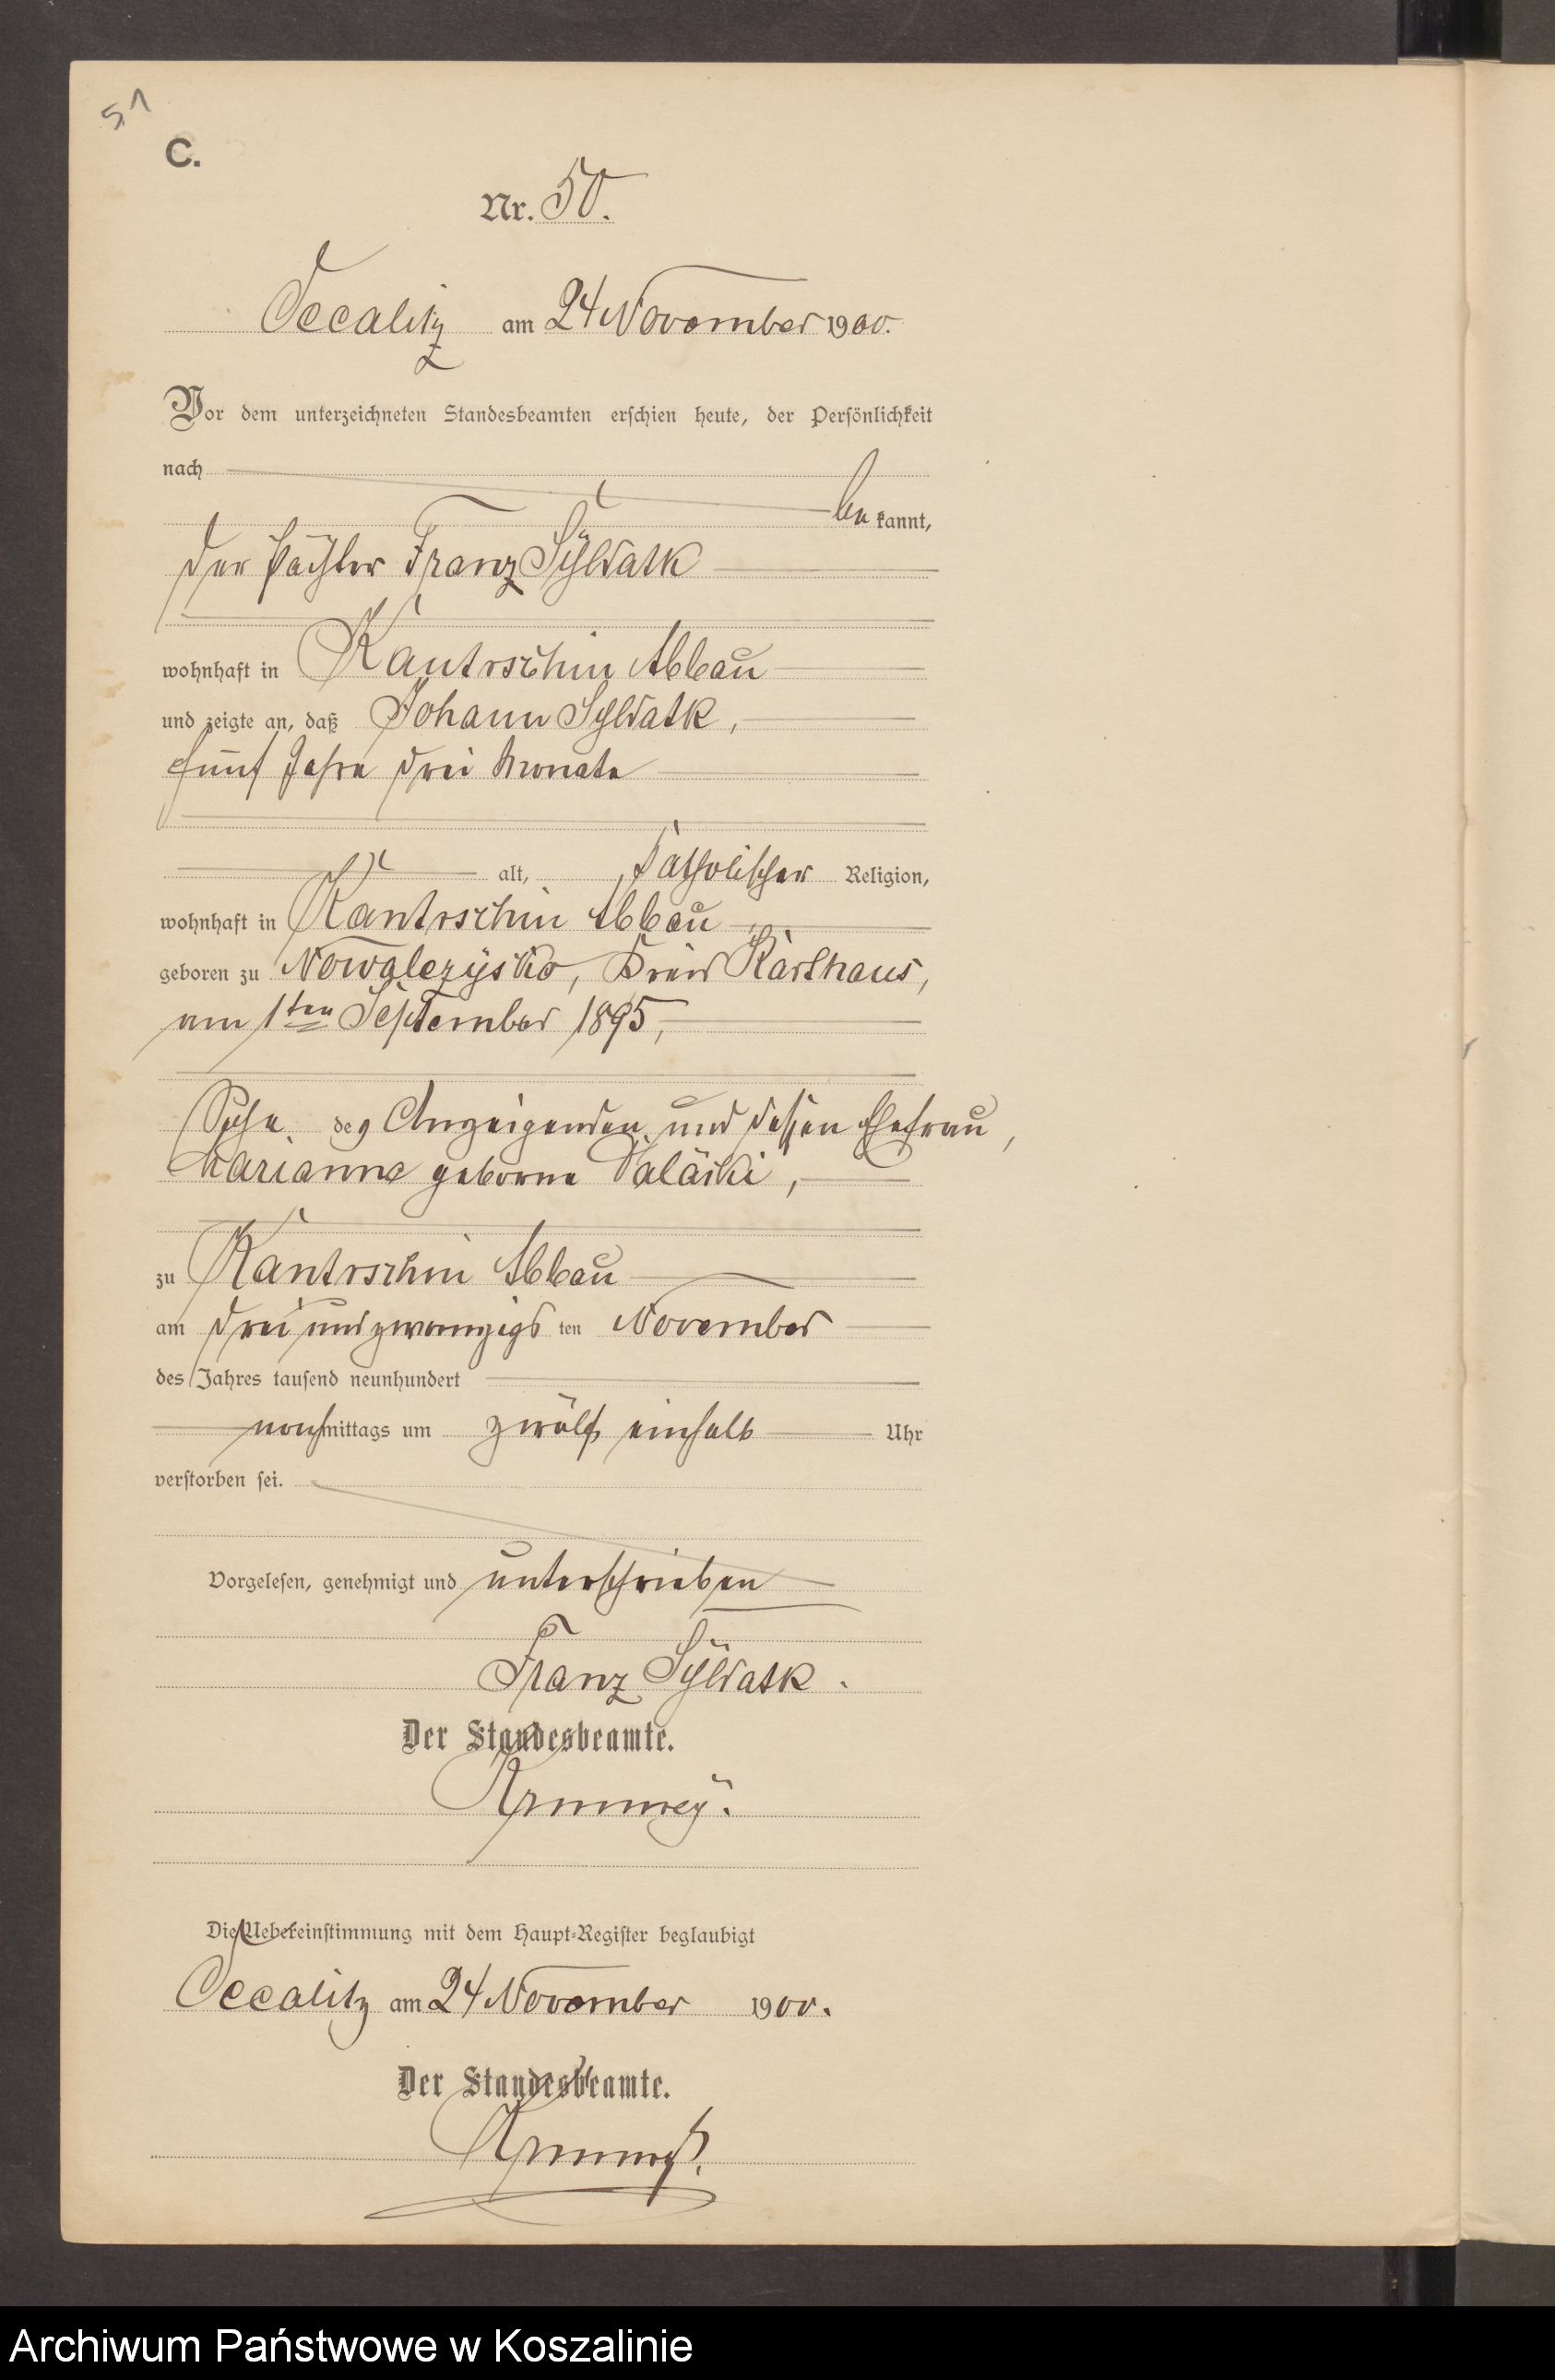 51
C.
Nr. 50.
Occalitz am 24 November 1900.
Vor dem unterzeichneten Standesbeamten erschien heute, der Persönlichkeit
nach
be kannt,
der Pächter Franz Sÿldatk
wohnhaft in Kantrschin Abbau
und zeigte an, daß Johann Syldatk,
fünf Jahre drei Monate
alt, katholischer Religion,
wohnhaft in Kantrschin Abbau
geboren zu Nowalczÿsko, Kreis Karthaus,
am 1ten September 1895,
Sohn des Anzeigenden und dessen Ehefrau,
Marianne geborne
zu Kantrschin Abbau
am drei und zwanzigs ten November
des Jahres tausend neunhundert
nachmittags um zwölf einhalb Uhr
verstorben sei.
Vorgelesen, genehmigt und unterschrieben
Franz Sÿldatk.
Der Standesbeamte.
Die Uebereinstimmung mit dem Haupt-Register beglaubigt
Occalitz am 24 November 1900.
Der Standesbeamte.
Archiwum Państwowe w Koszalinie